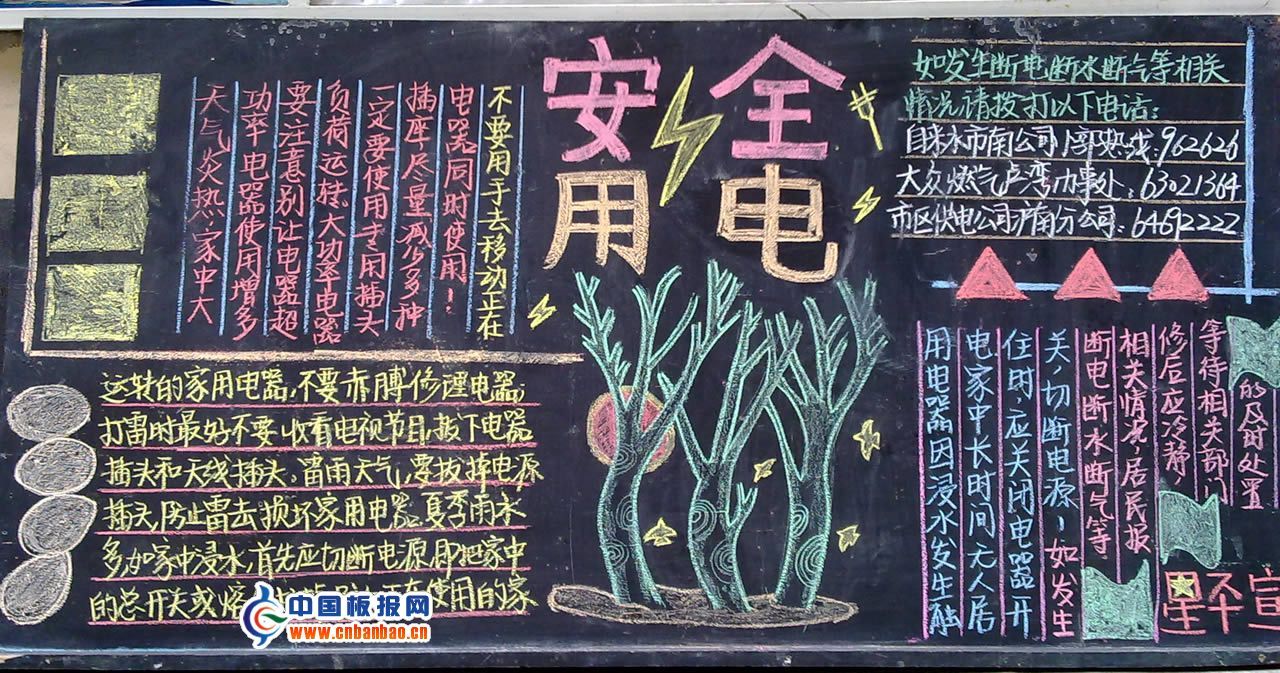 安全
用电
天气炎热,家中大
功率电器使用增多
要注意别让电器超
负荷运转.大功率电器
一定要使用专用插头
插座尽量减少多种
电器同时使用!
不要用手去移动正在
运转的家用电器,不要赤膊修理电器;
打雷时最好不要收看电视节目,拔下电器
插头和天线插头,雷雨天气,要拔掉电源
插头,防止雷击损坏家用电器.夏季雨水
多如家中浸水,首先应切断电源.即把家中
的总开关或熔使用的家
用电器因浸水发生触
电家中长时间无人居
住时,应关闭电器开
关,切断电源!如发生
断电断水断气等
相关情况,居民报
修后应冷静,
等待相关部门
的及时处置
如发生断电断水断气等相关
情况,请拨打以下电话:
自来水市南公司热线:962626
大众燃气卢湾办事处:63021364
市区供电公司沪南分公司:64692222
宣
中国板报网
www.cnbanbao.cn